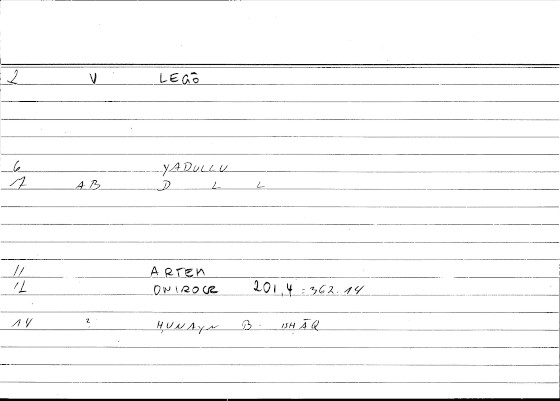 2 V LEGō
6 YADULLU
7 AB D L L
11 ARTEM
12 ONIROCR 201,4 = 362.14
14 ? ḤUNAYN B. ISḤĀQ